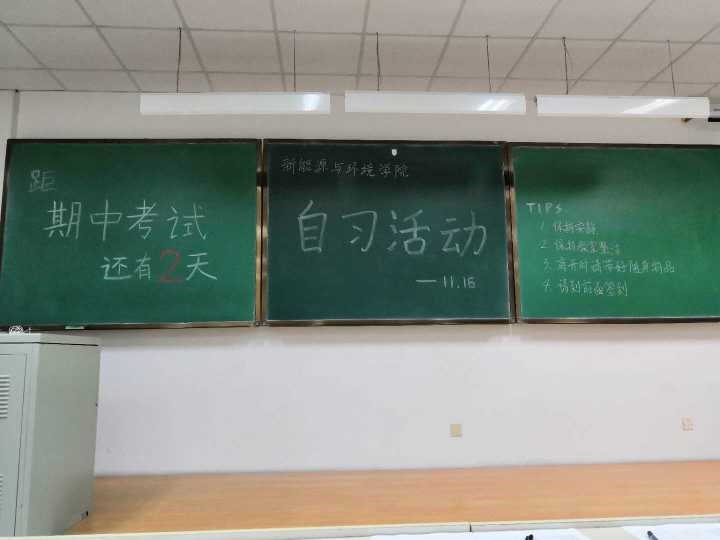 距
期中考试
还有2天
新能源与环境学院
自习活动
—11.16
TIPS
1. 保持安静
2. 保持教室整洁
3. 离开时请带好随身物品
4. 请到前面签到